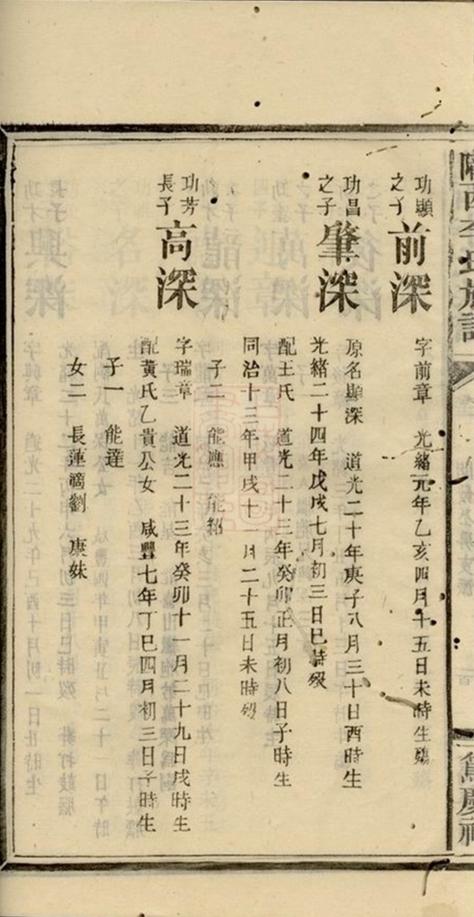 功顯之子
前深
字前章 光緒元年乙亥四月十五日未時生歿
功昌之子
肇深
原名顯深 道光二十年庚子八月三十日酉時生
光緒二十四年戊戌七月初三日巳時歿
配王氏 道光二十三年癸卯正月初八日子時生
同治十三年甲戌十一月二十五日未時歿
子二 能應 能紹
功芳長子
高深
字瑞章 道光二十三年癸卯十一月二十九日戌時生
配黃氏乙貴公女 咸豐七年丁巳四月初三日子時生
子一 能達
女二 長蓮適劉 康妹